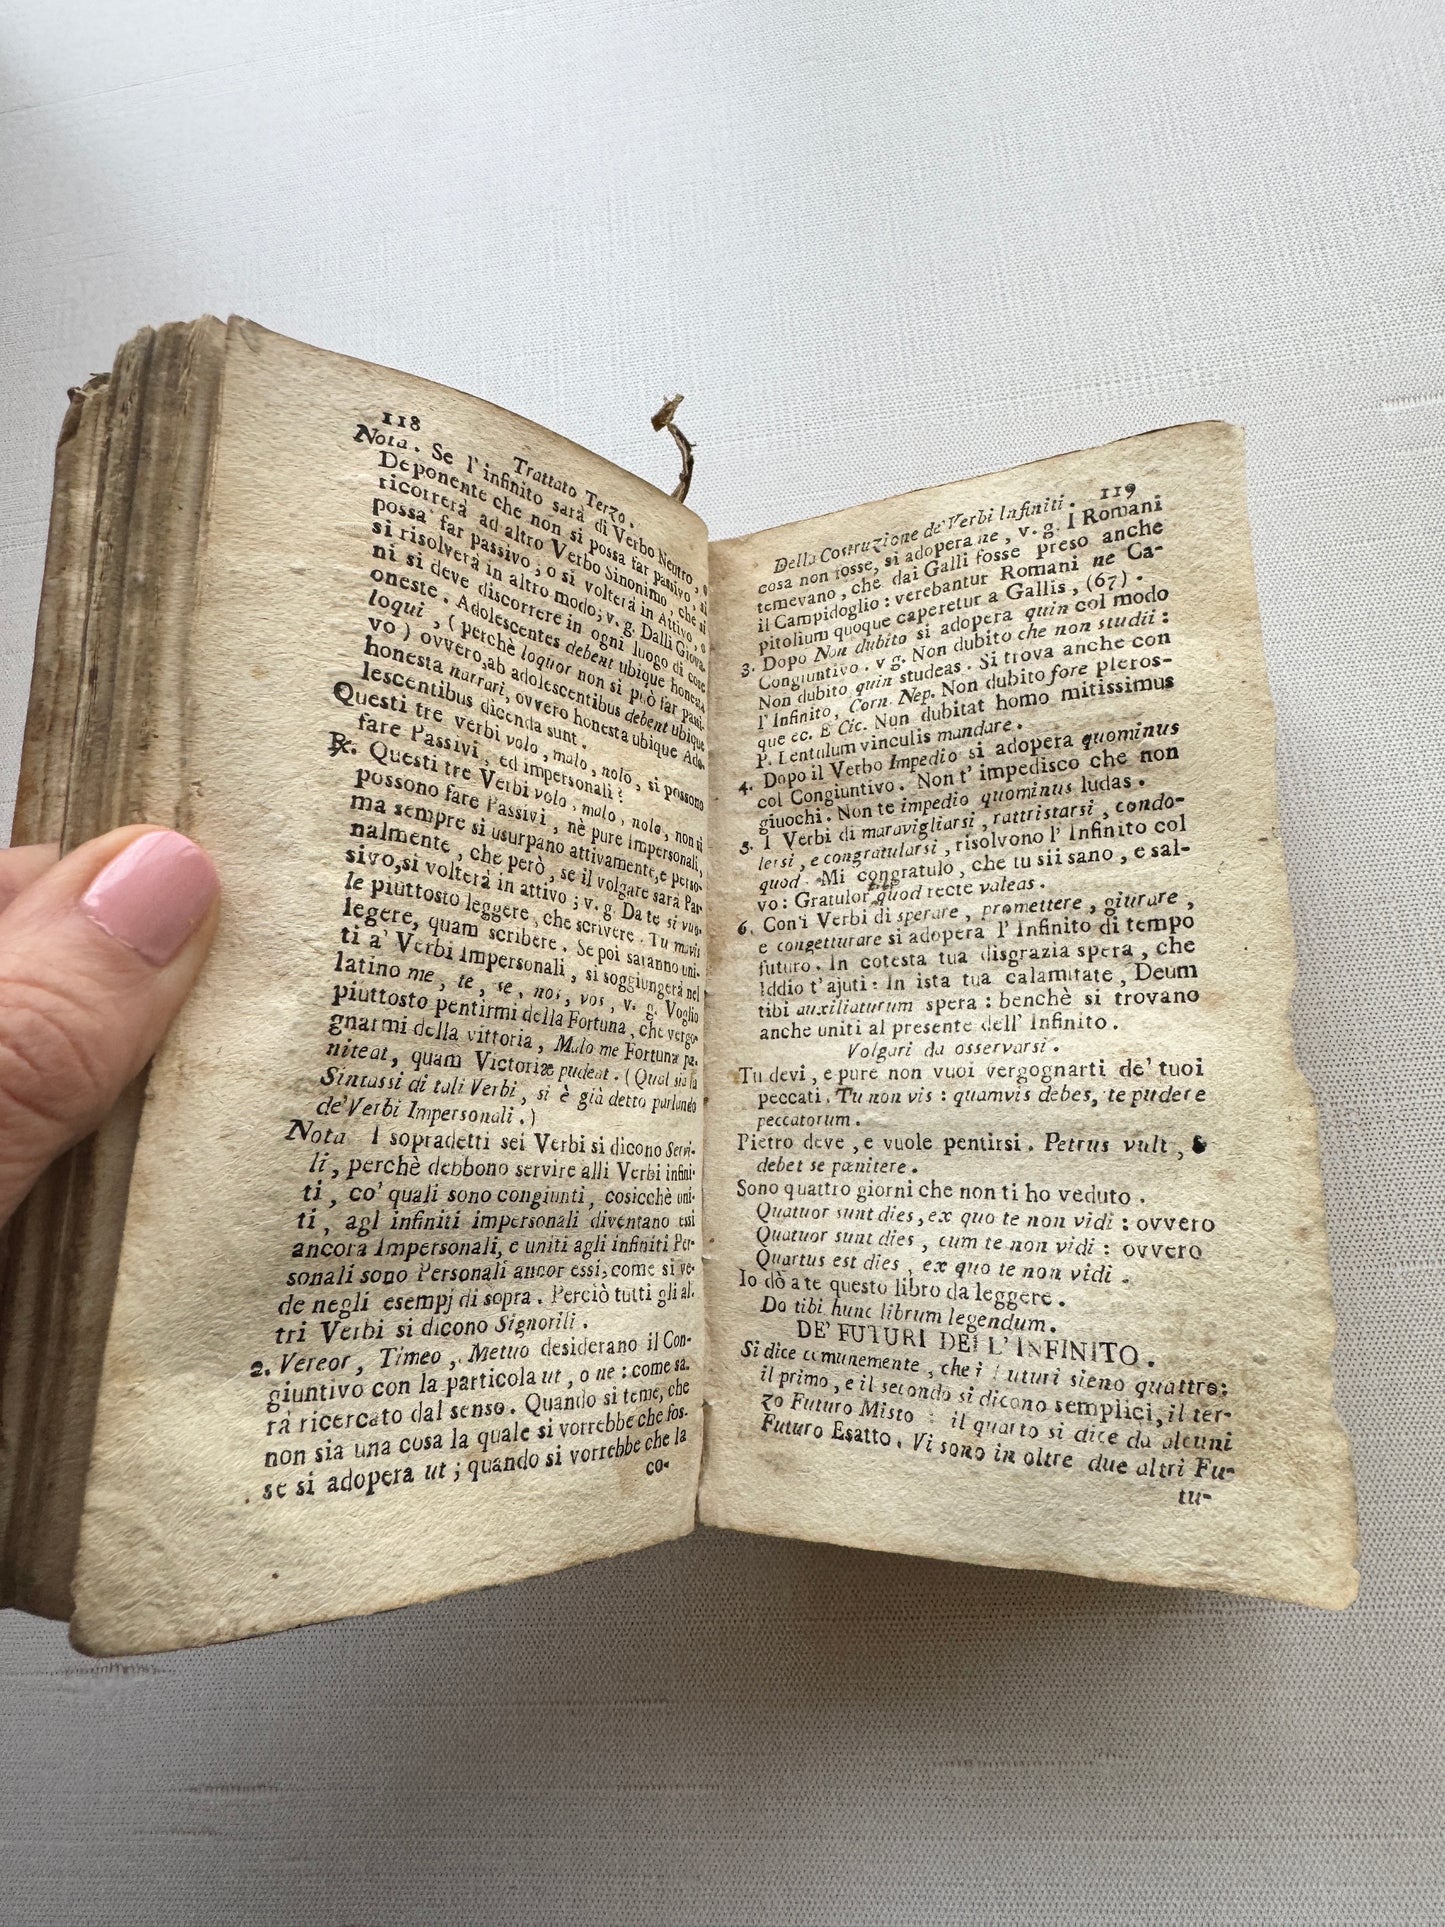 118
Trattato Terzo.
Nota. Se l'infinito sarà di Verbo Neutro, o
Deponente che non si possa far passivo, si
ricorrerà ad altro Verbo Sinonimo, che si
possa far passivo; o si volterà in Attivo, o
si risolverà in altro modo; v. g. Dalli Giova-
ni si deve discorrere in ogni luogo di cose
oneste. Adolescentes debent ubique honesta
loqui, (perchè loquor non si può far passi-
vo) ovvero, ab adolescentibus debent ubique
honesta narrari, ovvero honesta ubique Ado-
lescentibus dicenda sunt.
Questi tre verbi volo, malo, nolo, si possono
fare Passivi, ed impersonali?
℞. Questi tre Verbi volo, malo, nolo, non si
possono fare Passivi, nè pure Impersonali,
ma sempre si usurpano attivamente, e perso-
nalmente, che però, se il volgare sarà Pas-
sivo, si volterà in attivo; v. g. Da te si vuo-
le piuttosto leggere, che scrivere. Tu mavis
legere, quam scribere. Se poi saranno uni-
ti a' Verbi Impersonali, si soggiungerà nel
latino me, te, se, nos, vos, v. g. Voglio
piuttosto pentirmi della Fortuna, che vergo-
gnarmi della vittoria, Malo me Fortunæ pæ-
niteat, quam Victoriæ pudeat. (Qual sia la
Sintassi di tali Verbi, si è già detto parlando
de' Verbi Impersonali.)
Nota I sopradetti sei Verbi si dicono Servi-
li, perchè debbono servire alli Verbi infini-
ti, co' quali sono congiunti, cosicchè uni-
ti, agl infiniti impersonali diventano essi
ancora Impersonali, e uniti agli infiniti Per-
sonali sono Personali ancor essi, come si ve-
de negli esempj di sopra. Perciò tutti gli al-
tri Verbi si dicono Signorili.
2. Vereor, Timeo, Metuo desiderano il Con-
giuntivo con la particola ut, o ne: come sa-
rà ricercato dal senso. Quando si teme, che
non sia una cosa la quale si vorrebbe che fos-
se si adopera ut; quando si vorrebbe che la
co-
119
Della Costruzione de' Verbi Infiniti.
cosa non fosse, si adopera ne, v. g. I Romani
temevano, che dai Galli fosse preso anche
il Campidoglio: verebantur Romani ne Ca-
pitolium quoque caperetur a Gallis, (67).
3. Dopo Non dubito si adopera quin col modo
Congiuntivo. v g. Non dubito che non studii:
Non dubito quin studeas. Si trova anche con
l'Infinito, Corn. Nep. Non dubito fore pleros-
que ec. E Cic. Nun dubitat homo mitissimus
P. Lentulum vinculis mandare.
4. Dopo il Verbo Impedio si adopera quominus
col Congiuntivo. Non t' impedisco che non
giuochi. Non te impedio quominus ludas.
5. I Verbi di maravigliarsi, rattristarsi, condo-
lersi, e congratularsi, risolvono l' Infinito col
quod. Mi congratulo, che tu sii sano, e sal-
vo: Gratulor quod recte valeas.
6. Con'i Verbi di sperare, promettere, giurare,
e congetturare si adopera l' Infinito di tempo
futuro. In cotesta tua disgrazia spera, che
Iddio t'ajuti: In ista tua calamitate, Deum
tibi auxiliaturum spera: benchè si trovano
anche uniti al presente dell' Infinito.
Volgari da osservarsi.
Tu devi, e pure non vuoi vergognarti de' tuoi
peccati. Tu non vis: quamvis debes, te pudere
peccatorum.
Pietro deve, e vuole pentirsi. Petrus vult, &
debet se pænitere.
Sono quattro giorni che non ti ho veduto.
Quatuor sunt dies, ex quo te non vidi: ovvero
Quatuor sunt dies, cum te non vidi: ovvero
Quartus est dies, ex quo te non vidi.
Io dò a te questo libro da leggere.
Do tibi hunc librum legendum.
DE' FUTURI DELL'INFINITO.
Si dice comunemente, che i Futuri sieno quattro:
il primo, e il secondo si dicono semplici, il ter-
zo Futuro Misto: il quarto si dice da alcuni
Futuro Esatto. Vi sono in oltre due altri Fu-
tu-